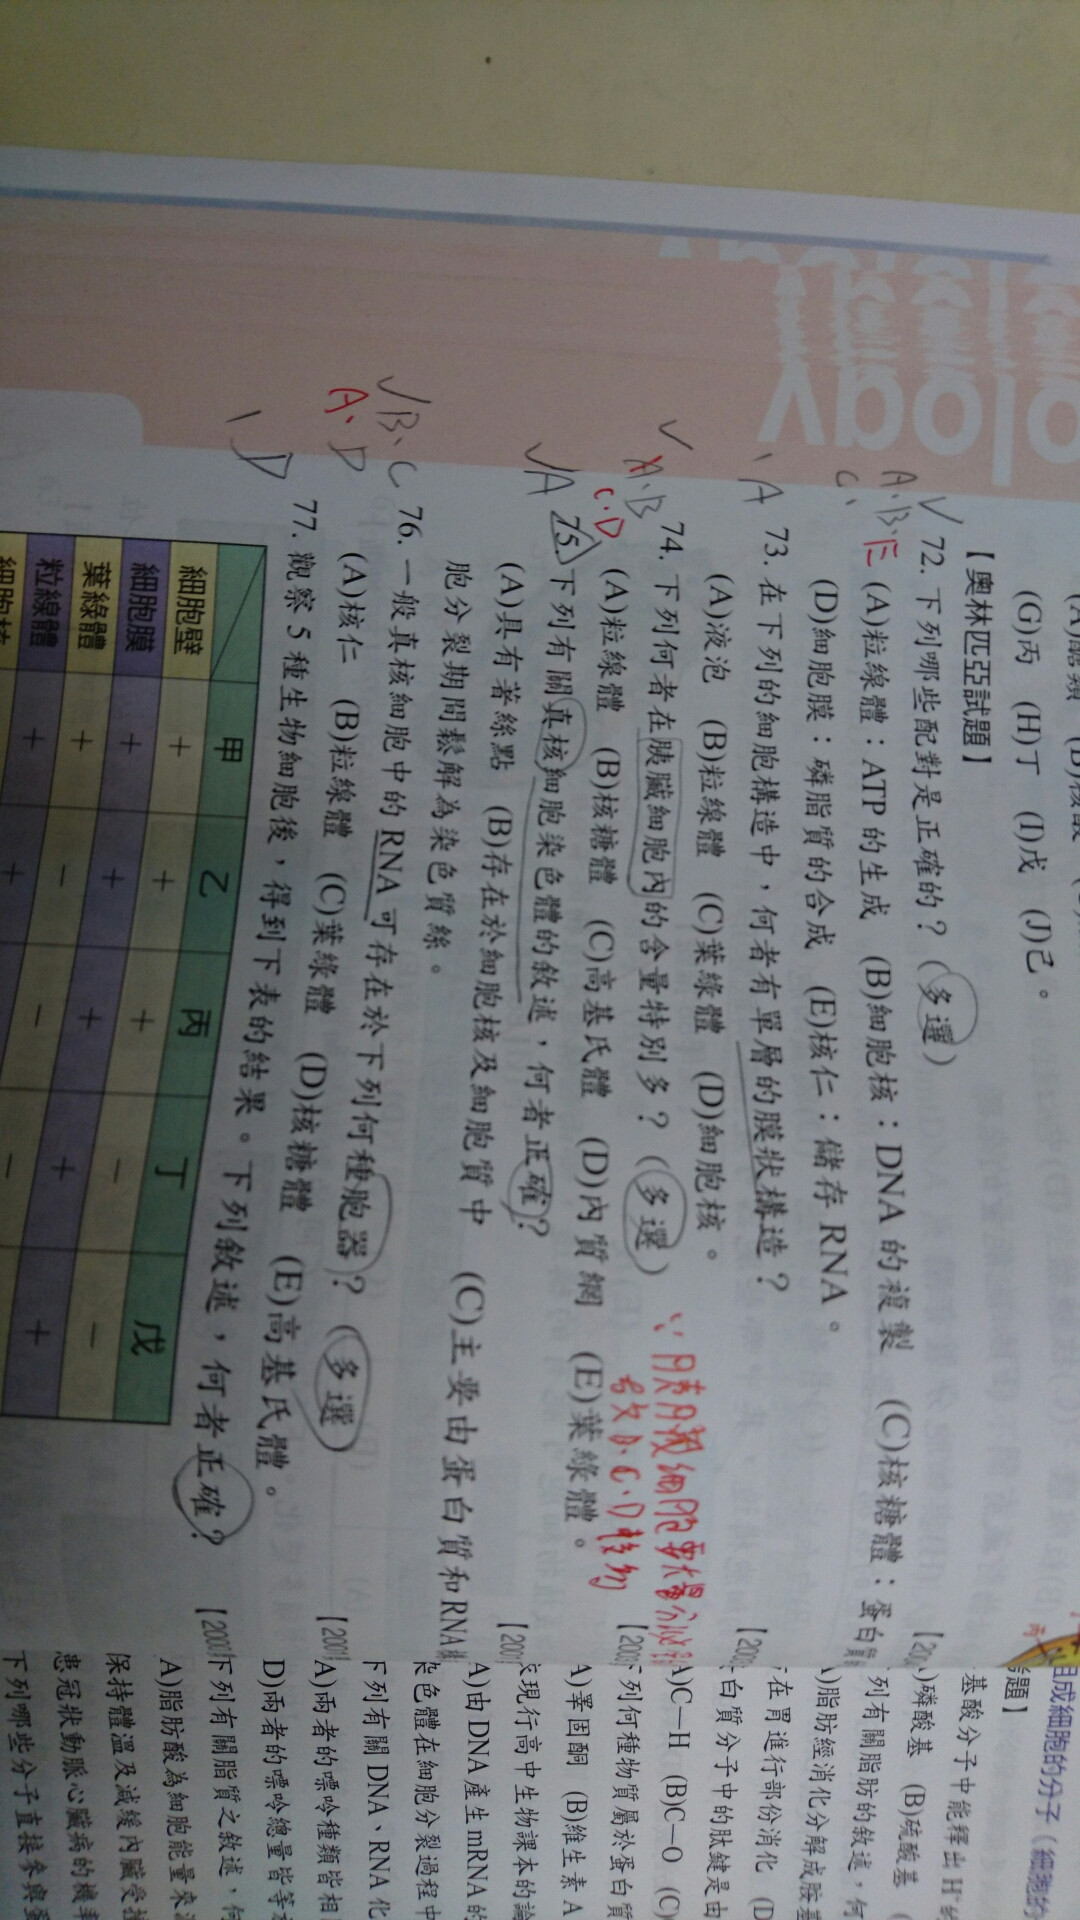 ology
(G)丙 (H)丁 (I)戊 (J)己。
【奧林匹亞試題】
72. 下列哪些配對是正確的？(多選)
(A)粒線體：ATP 的生成 (B)細胞核：DNA 的複製 (C)核糖體：蛋白
(D)細胞膜：磷脂質的合成 (E)核仁：儲存 RNA。
73. 在下列的細胞構造中，何者有單層的膜狀構造？
(A)液泡 (B)粒線體 (C)葉綠體 (D)細胞核。
74. 下列何者在胰臟細胞內的含量特別多？(多選)
(A)粒線體 (B)核糖體 (C)高基氏體 (D)內質網 (E)葉綠體。
75. 下列有關真核細胞染色體的敘述，何者正確？
(A)具有著絲點 (B)存在於細胞核及細胞質中 (C)主要由蛋白質和RNA
胞分裂期間鬆解為染色質絲。
76. 一般真核細胞中的 RNA 可存在於下列何種胞器？(多選)
(A)核仁 (B)粒線體 (C)葉綠體 (D)核糖體 (E)高基氏體。
77. 觀察 5 種生物細胞後，得到下表的結果。下列敘述，何者正確？
甲 乙 丙 丁 戊
細胞壁 + + − − −
細胞膜 + + + + +
葉綠體 + − − −
粒線體 + +
細胞核
A、B、E
C、
A
A、B
C、D
A
B、C
A、D
D
∵胰臟細胞要大量分泌
故B、C、D較多
組成細胞的分子（細胞的
基酸分子中能釋出 H⁺
)磷酸基 (B)硫酸基
列有關脂肪的敘述，何
)脂肪經消化分解成胺基
在胃進行部份消化 (D
白質分子中的肽鍵是由
A)C—H (B)C—O (C)
下列何種物質屬於蛋白質
A)睪固酮 (B)維生素 A
現行高中生物課本的論
A)由 DNA 產生 mRNA 的
色體在細胞分裂過程中
下列有關 DNA、RNA 化
A)兩者的嘌呤種類皆相
D)兩者的嘌呤總量皆等
下列有關脂質之敘述，何
A)脂肪酸為細胞能量來
保持體溫及減緩內臟受
患冠狀動脈心臟病的機率
下列哪些分子直接參與蛋